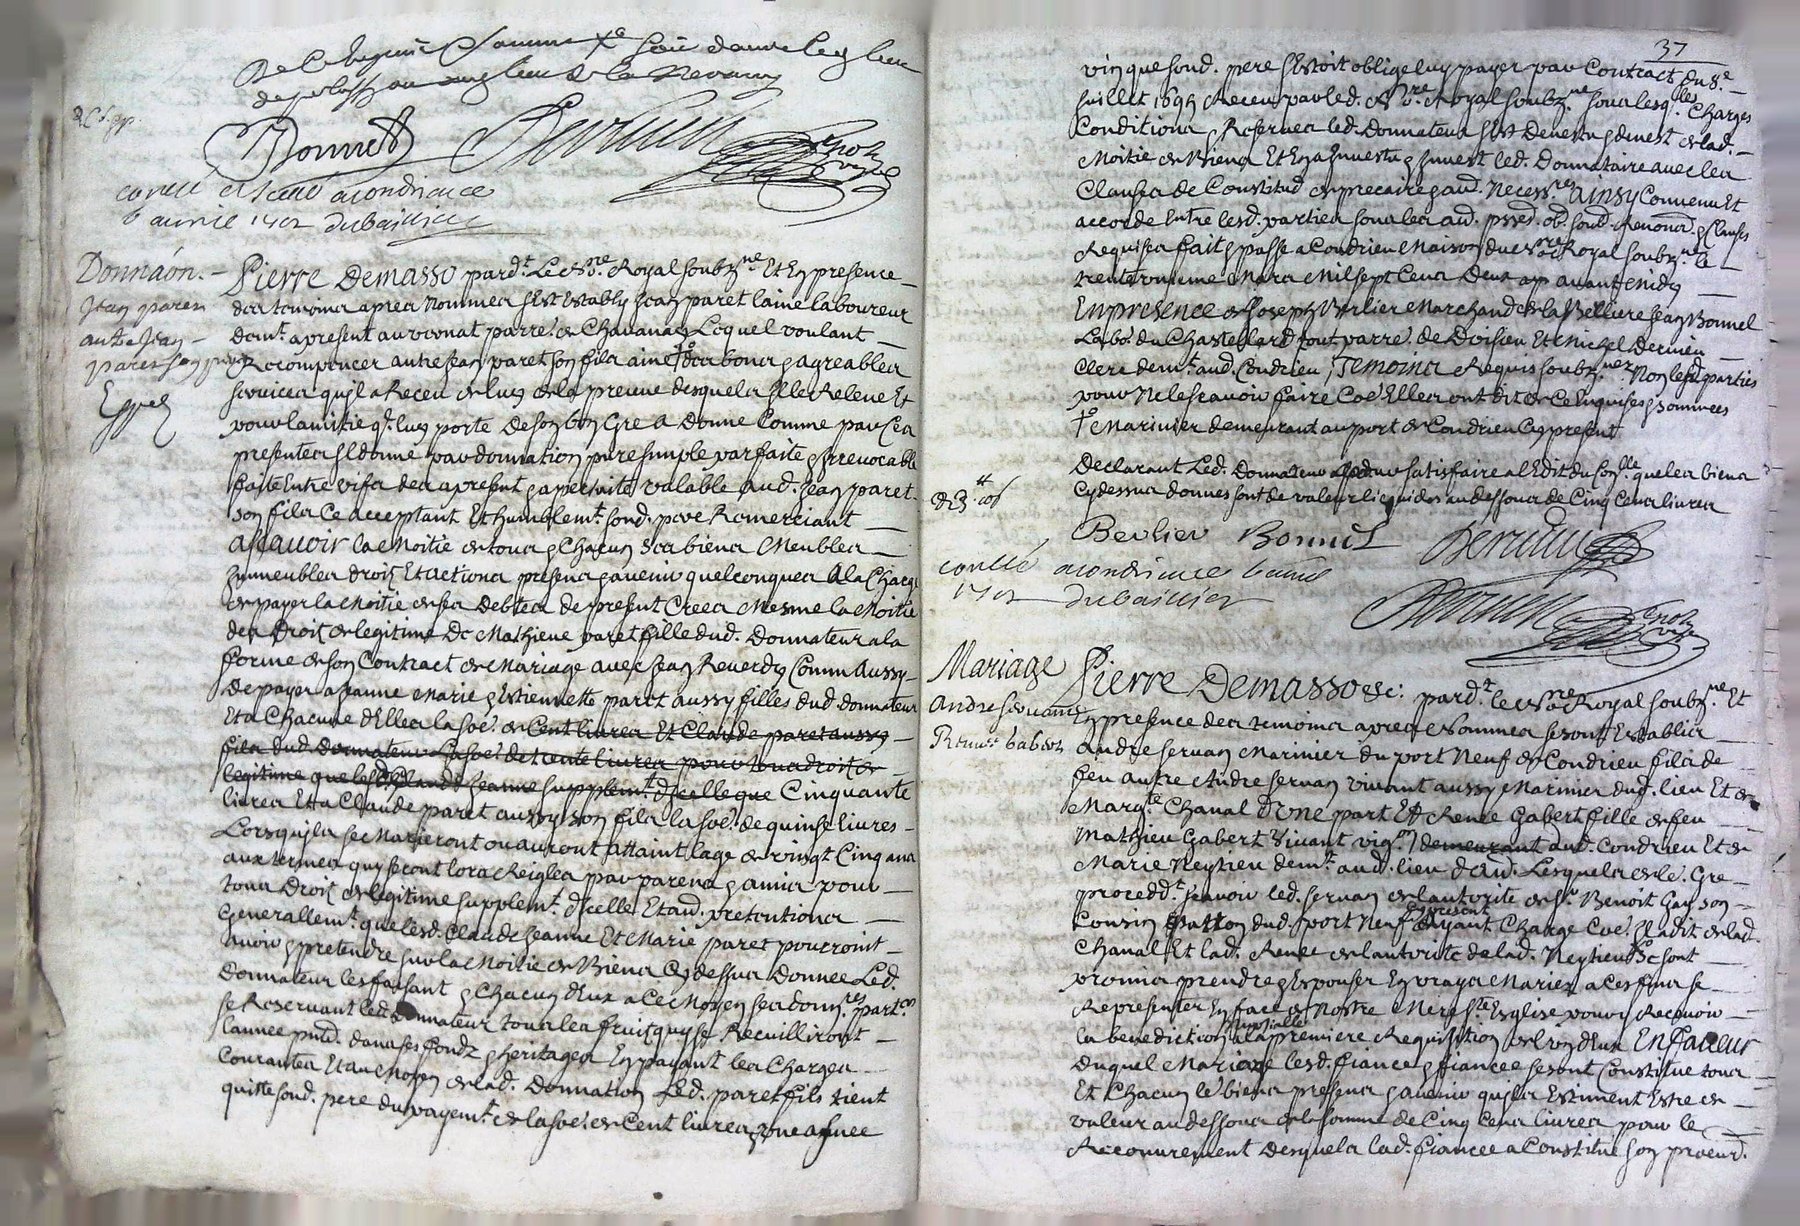 Bonnet
controllé et scellé a condrieu ce
6 avril 1702 dubaillier
Donnaon.
Jean paret
autre Jean
paret son
Expéd
Pierre Demasso pardt. Le Nre. Royal soubz.né Et En presence
des temoins apres nommes s'Est Estably Jean paret laine laboureur
demt. a present au vernat parre. de Chavanay Lequel voulant
Recompencer autre Jean paret son fils aine +o des bons & agreables
services qu'il a Receu de luy de la preuve desquels Il le Releve Et
pour lamitie q. luy porte De son bon Gre A Donne Comme par Ces
presentes Il donne par donnation pure simple parfaite & Irrevocable
faite Entre vifs des apresent & a perpetuite valable aud. Jean paret
son fils Ce acceptant Et humblemt. sond. pere Remerciant
Ascavoir la Moitie de tous & Chacuns Ses biens Meubles
Immeubles droits Et actions presens & avenir quelconques A la Charge
de payer la Moitie de ses Debtes de present Crees Mesme la Moitie
des Droits de legitime De Mathieue paret fille dud. Donnateur a la
forme de son Contract de Mariage avec Jean Reverdy Comm Aussy
De payer a Jeanne Marie & Estiennette paret aussy filles dud donnateur
Et a Chacune d'Elles la soe. de Cent livres Et Claude paret aussy
fils dud Donnateur la soe. de trente livres pour tous droits de
legitime que lesd. Claude Jeanne supplemt. d'icelle que Cinquante
livres Et a Claude paret aussy son fils la soe. de quinse livres
Lorsquils se Marieront ou auront attaint lage de vingt Cinq ans
aux termes quy seront lors Reigles par parens & amis pour
tous Droits de legitime supplemt. d'icelle Et aud. pretentions
Generallemt. que lesd. Claude Jeanne Et Marie paret pourroint
Avoir & pretendre sur la Moitie de Biens Cy dessus Donnee Led.
donnateur les faisant & Chacun d'Eux a Ce Moyen ses donnres. partres.
se Reservant led. donnateur tous les fruits quy se Recuilliront
lannee pnte. dans ses fondz & heritages En payant les Charges
Courantes Et au Moyen de lad. Donnation Led. paret fils tient
quitte sond. pere du payemt. de la soe. de Cent livres & une asnee
37
vin que sond. pere s'Estoit oblige luy payer par Contract du 8e
Juillet 1695 Receu par led. Nre. Royal soubz.né sous lesqlles. Charges
Conditions & Reserves led. Donnateur s'Est Devestu & demest de lad.
Moitie de Biens Et En a Investu & Invest led. Donnataire avec les
Clauses de Constitud de precaire & aud. Necessres. Ainsy Convenu Et
accorde Entre lesd. parties sous les aud. pssed. ob. soud. Renond. & Clauses
Requises fait & passe a Condrieu Maison du Nre Royal soubz.né le
trente uniesme Mars Mil sept Cens Deux ap avant Midy
En presence de Joseph Berlier Marchand de la Belliere Jean Bonnet
Labo. du Chastelard tout parre. de Doisieu Et Michel Dervieu
Clerc demt. aud. Condrieu Temoins Requis soubz.nez Non lesd parties
pour Ne le scavoir faire Coe Elles ont dit de Ce Enquises & sommees
+o Marinier demeurant au port de Condrieu Cy present
Declarant Led. Donnateur pour satisfaire a l'Edit du Con.lle que les biens
Cy dessus donnes sont de valeur liquides au dessous de Cinq Cens livres
Berlier Bonnet Dervieu
controllé a condrieu ce 6 avril
1702 dubaillier
Mariage
Andre servant
Renee Gabert
Pierre Demasso esc: pardt. le Nre Royal soubz.né Et
En presence des temoins apres Nommes se sont Establis
Andre servan Marinier du port Neuf de Condrieu fils de
feu autre Andre servan vivant aussy Marinier dud. lieu Et de
Margte. Chanal d'Une part Et Renee Gabert fille de feu
Mathieu Gabert Vivant vign. demeurant aud. Condrieu Et de
Marie Neytieu demt. aud. lieu d'aud. Lesquels de le. Gre
proceddt. scavoir led. servan de l'autorite de sr. Benoit Gay son
Cousin patton dud. port Neuf Cy present ayant Charge Coe. Il a dit de lad.
Chanal Et lad. Renee de l'autorite de lad. Neytieu se sont
promis prendre & Espouser En vraye Mariez a Ces fins se
Representer En face de Nostre Mere ste Esglise pour y Recevoir
la benediction nuptialle a la premiere Requisition de l'un d'Eux En faveur
duquel Mariage lesd. fiance & fiancee se sont Constitue tous
Et Chacun le. biens presens & avenir quils Estiment Estre de
valeur au dessous de la somme de Cinq Cens livres pour le
Recouvrement Desquels lad. fiancee a Constitue son procur.